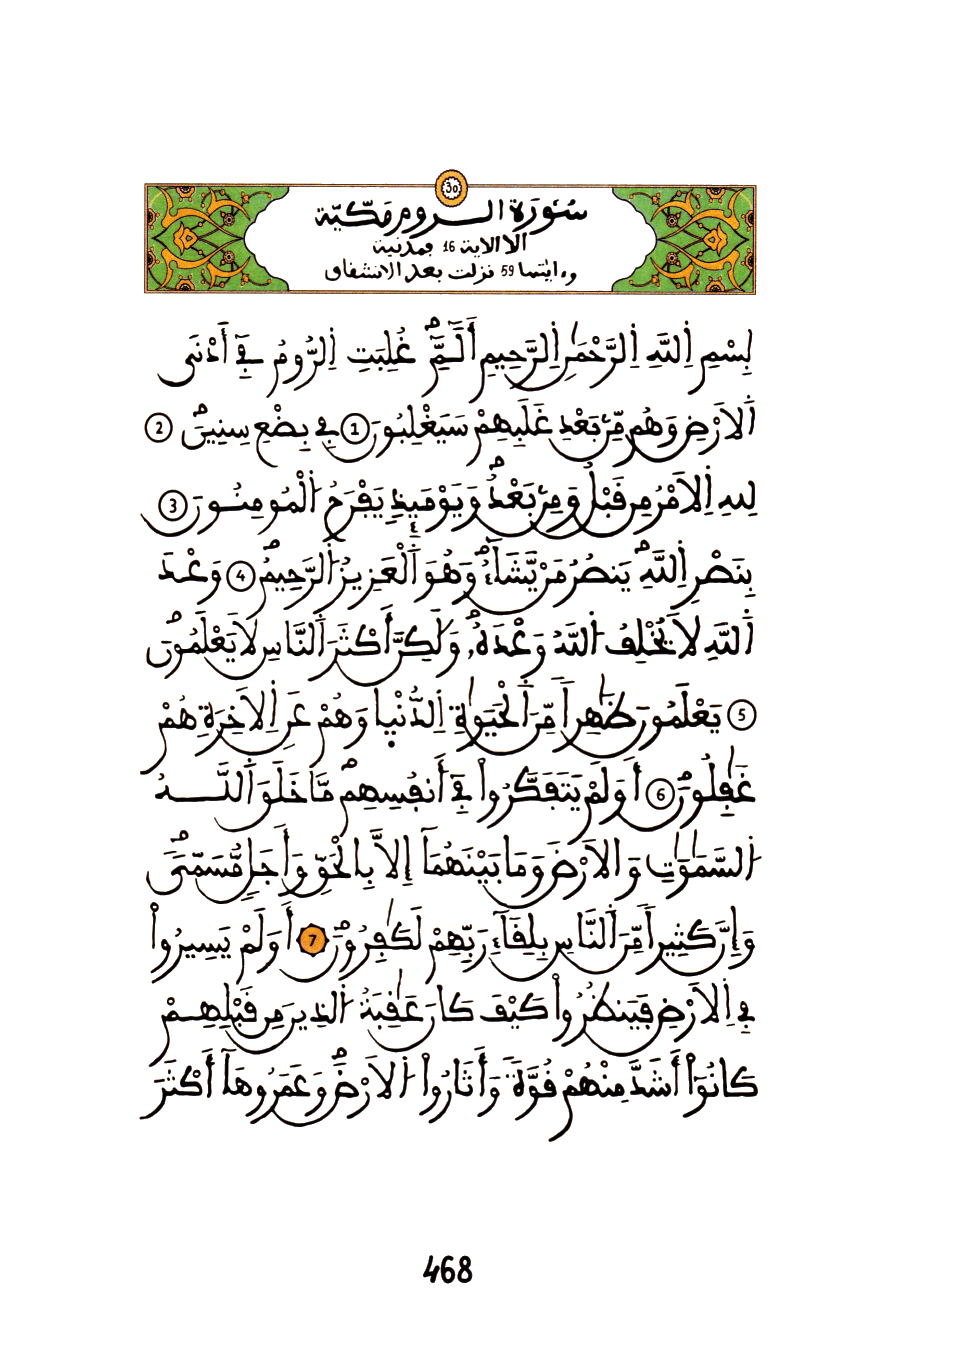 30
سُورَةُ الروم مَكِّيَّة
الا الاية 16 فمدنية
وءايٰتها 59 نزلت بعد الانشفاق
بِسْمِ اِ۬للَّهِ اِ۬لرَّحْمَٰنِ اِ۬لرَّحِيمِ أَلَٓمِّٓۖ غُلِبَتِ اِ۬لرُّومُ فِےٓ أَدْنَي
اَ۬لَارْضِ وَهُم مِّنۢ بَعْدِ غَلَبِهِمْ سَيَغْلِبُونَ 1 فِے بِضْعِ سِنِينَۖ 2
لِلهِ اِ۬لَامْرُ مِن قَبْلُ وَمِنۢ بَعْدُۖ وَيَوْمَئِذٖ يَفْرَحُ اُ۬لْمُومِنُونَ 3
بِنَصْرِ اِ۬للَّهِۖ يَنصُرُ مَنْ يَّشَآءُۖ وَهُوَ اَ۬لْعَزِيزُ اُ۬لرَّحِيمُۖ 4 وَعْدَ
اَ۬للَّهِ لَا يُخْلِفُ اُ۬للَّهُ وَعْدَهُۥۖ وَلَٰكِنَّ أَكْثَرَ اَ۬لنَّاسِ لَا يَعْلَمُونَۖ
5 يَعْلَمُونَ ظَٰهِراٗ مِّنَ اَ۬لْحَيَوٰةِ اِ۬لدُّنْي۪ا وَهُمْ عَنِ اِ۬لَاخِرَةِ هُمْ
غَٰفِلُونَۖ 6 أَوَلَمْ يَتَفَكَّرُواْ فِےٓ أَنفُسِهِمۖ مَّا خَلَقَ اَ۬للَّهُ
اُ۬لسَّمَٰوَٰتِ وَالَارْضَ وَمَا بَيْنَهُمَآ إِلَّا بِالْحَقِّ وَأَجَلٖ مُّسَمّيٗۖ
وَإِنَّ كَثِيراٗ مِّنَ اَ۬لنَّاسِ بِلِقَآءِ رَبِّهِمْ لَكَٰفِرُونَۖ 7 أَوَلَمْ يَسِيرُواْ
فِے اِ۬لَارْضِ فَيَنظُرُواْ كَيْفَ كَانَ عَٰقِبَةُ اُ۬لذِينَ مِن قَبْلِهِمْ
كَانُوٓاْ أَشَدَّ مِنْهُمْ قُوَّةٗ وَأَثَارُواْ اُ۬لَارْضَۖ وَعَمَرُوهَآ أَكْثَرَ
468